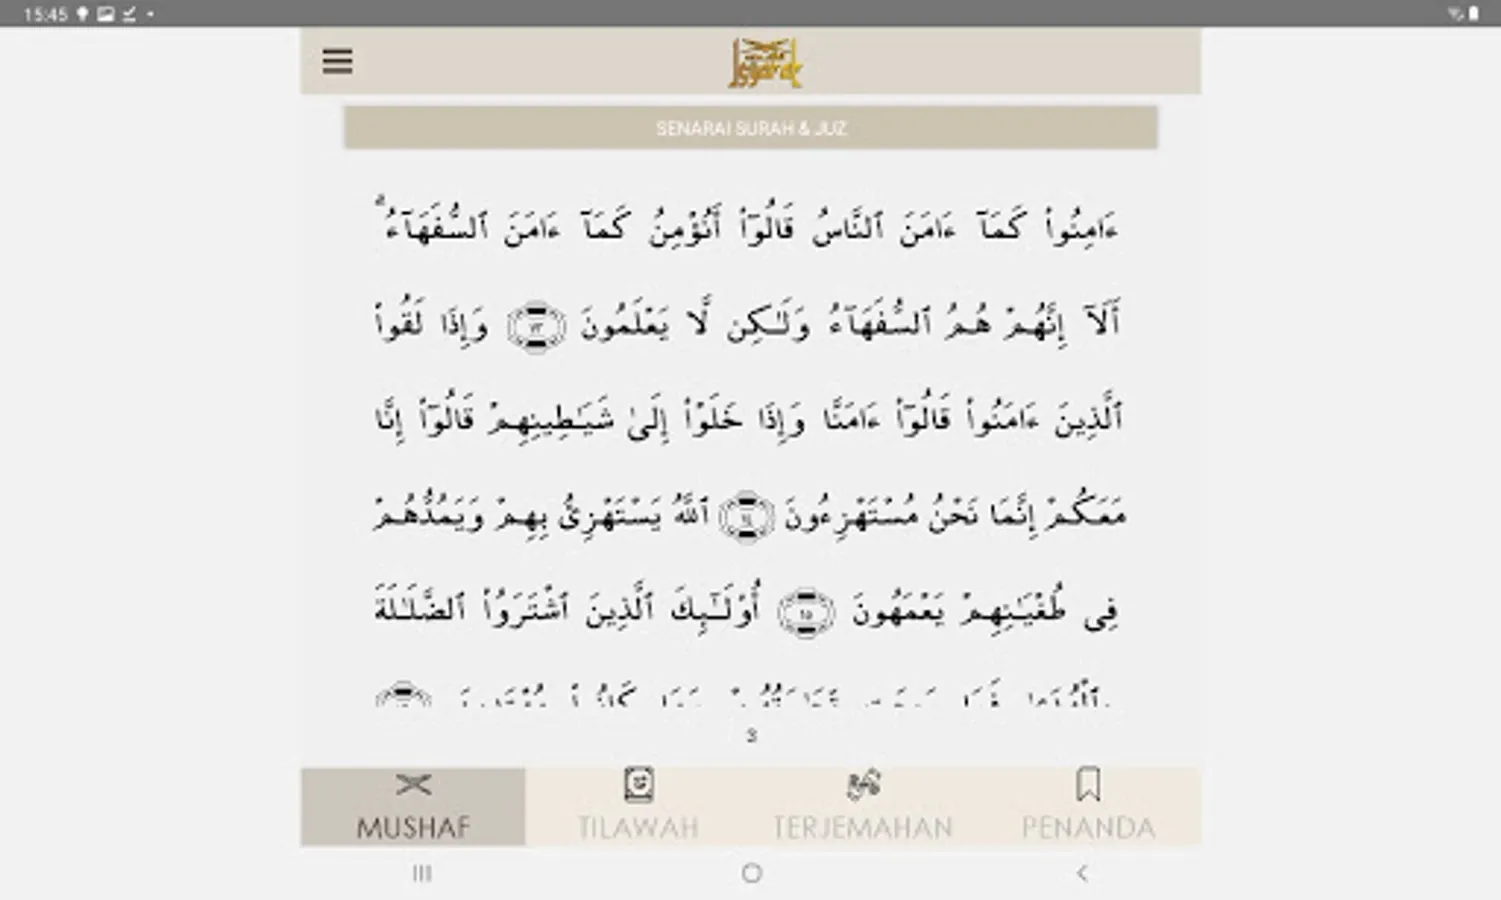 15:45
SENARAI SURAH & JUZ
ءَامِنُوا۟ كَمَآ ءَامَنَ ٱلنَّاسُ قَالُوٓا۟ أَنُؤْمِنُ كَمَآ ءَامَنَ ٱلسُّفَهَآءُ ۗ
أَلَآ إِنَّهُمْ هُمُ ٱلسُّفَهَآءُ وَلَـٰكِن لَّا يَعْلَمُونَ ١٣ وَإِذَا لَقُوا۟
ٱلَّذِينَ ءَامَنُوا۟ قَالُوٓا۟ ءَامَنَّا وَإِذَا خَلَوْا۟ إِلَىٰ شَيَـٰطِينِهِمْ قَالُوٓا۟ إِنَّا
مَعَكُمْ إِنَّمَا نَحْنُ مُسْتَهْزِءُونَ ١٤ ٱللَّهُ يَسْتَهْزِئُ بِهِمْ وَيَمُدُّهُمْ
فِى طُغْيَـٰنِهِمْ يَعْمَهُونَ ١٥ أُو۟لَـٰٓئِكَ ٱلَّذِينَ ٱشْتَرَوُا۟ ٱلضَّلَـٰلَةَ
3
MUSHAF
TILAWAH
TERJEMAHAN
PENANDA